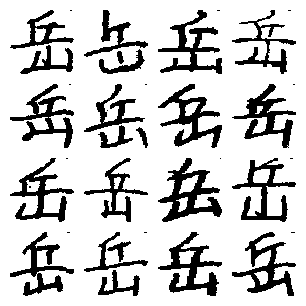 岳岳岳岳
岳岳岳岳
岳岳岳岳
岳岳岳岳